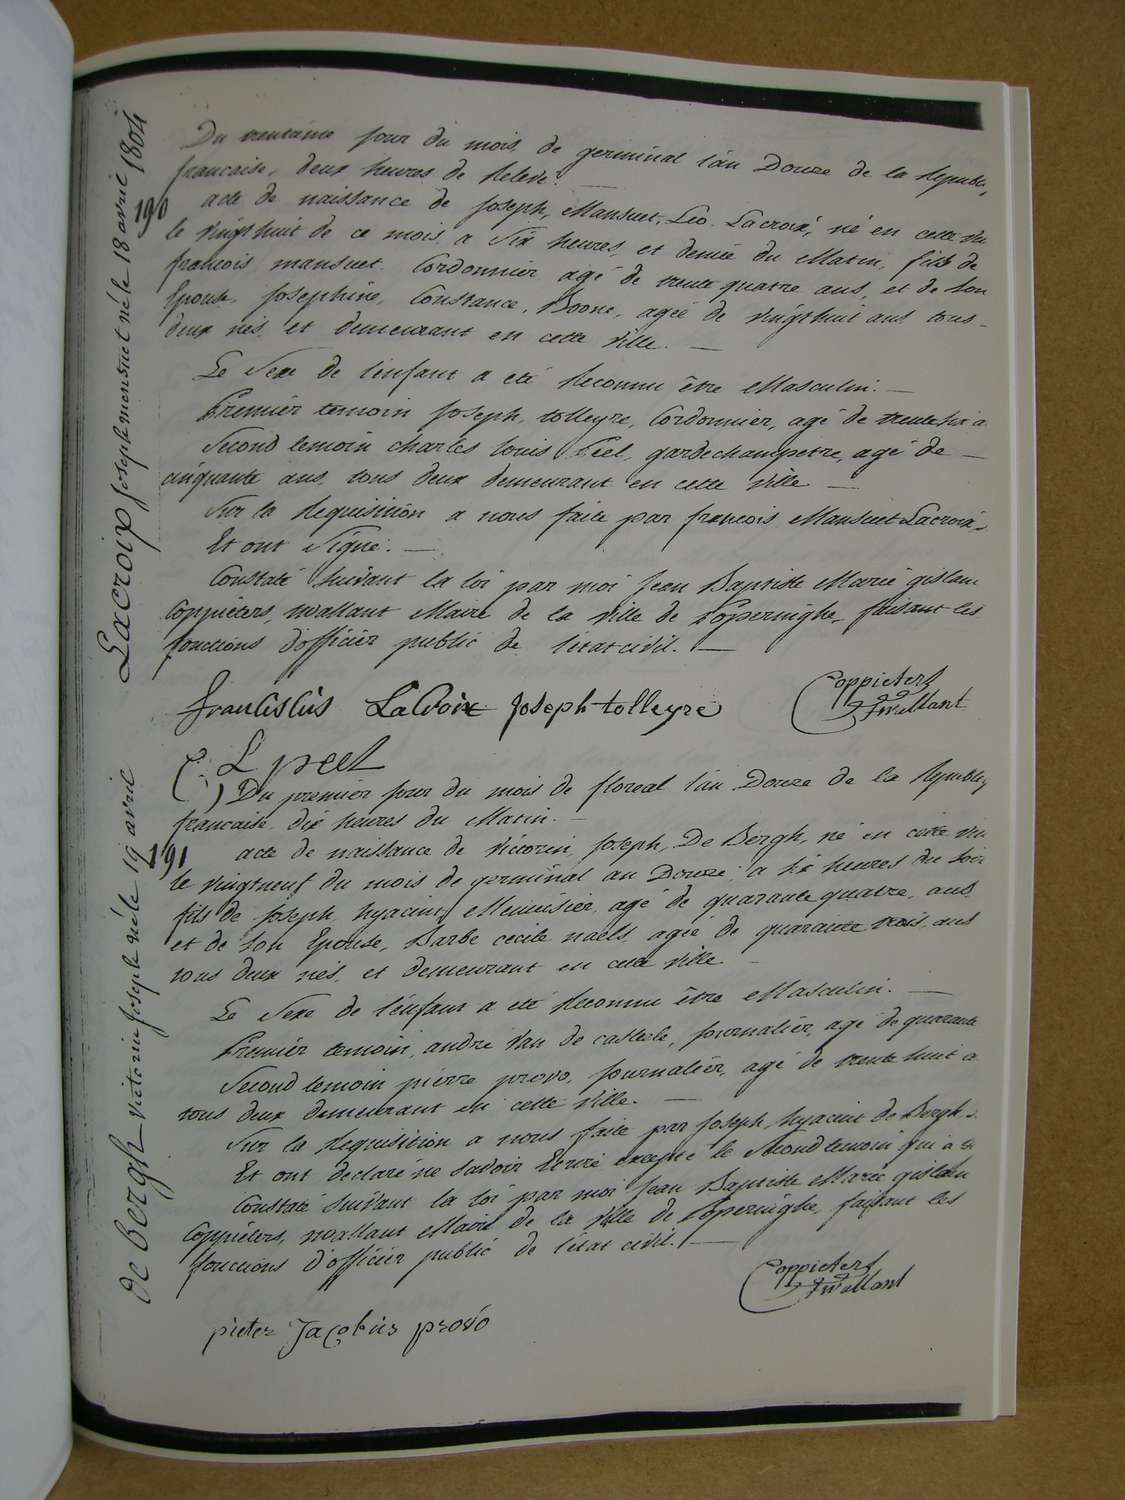 Lacroix joseph mensuet né le 18 avril 1804
190
Du trentième jour du mois de germinal l'an Douze de la Republi,
francaise, deux heures de Relevé.
acte de naissance de joseph, Mansuet, Leo. Lacroix, né en cette vil
le vingthuit de ce mois a Six heures, et demie du Matin, fils de
francois mansuet Cordonnier agé de trente quatre ans, et de Son
Epouse, josephine, Constance, Boone, agée de vingthuit ans tous
deux nés, et demeurant en cette ville.
Le Sexe de l'enfant a eté Reconnu être Masculin.
Premiér temoin joseph, tolleyre, Cordonnier, agé de trentesix a
Second temoin charles louis Peel, gardechampetre, agé de
cinquante ans, tous deux demeurant en cette ville
Sur la Requisition a nous faite par francois Mansuet Lacroix
Et ont Signé.
Constaté Suivant la loi par moi Jean Baptiste Marie gislain
Coppiéters, wallant Maire de la ville de Poperinghe, faisant les
fonctions d'officiér public de l'état civil.
franciscus LaCroix joseph tolleyre
Coppieters
Twallant
C: L peel
de bergh victorin joseph né le 19 avril
191
Du premiér jour du mois de floreal l'an Douze de la Republiq
francaise, dix heures du Matin.
acte de naissance de Victorin, joseph, De Bergh, né en cette vil
le vingtneuf du mois de germinal an Douze, a six heures du Soir
fils de joseph hyacint, Menuisier, agé de quarante quatre, ans,
et de Son Epouse, Barbe cecile naels, agée de quarante trois, ans
tous deux nés, et demeurant en cette ville
Le Sexe de l'enfant a eté Reconnu être Masculin.
Premiér temoin, andré Van de casteele, journaliér, agé de quarante
Second temoin pierre provo, journaliér, agé de trente huit a
tous deux demeurant en cette ville.
Sur la Requisition a nous faite par joseph, hyacint de Bergh
Et ont declaré ne Savoir Ecrire excepté le Second temoin qui a Si
Constaté Suivant la loi par moi Jean Baptiste Marie gislain
Coppiéters, wallant Maire de la ville de Poperinghe, faisant les
fonctions d'officiér public de l'état civil.
Coppieters
Twallant
pieter Jacobus provo